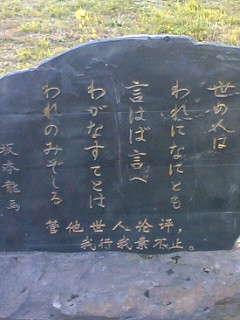 世の人は
われになにとも
言はば言へ
わがなすことは
われのみぞしる
坂本龍馬
管他世人论评，
我行我素不止。